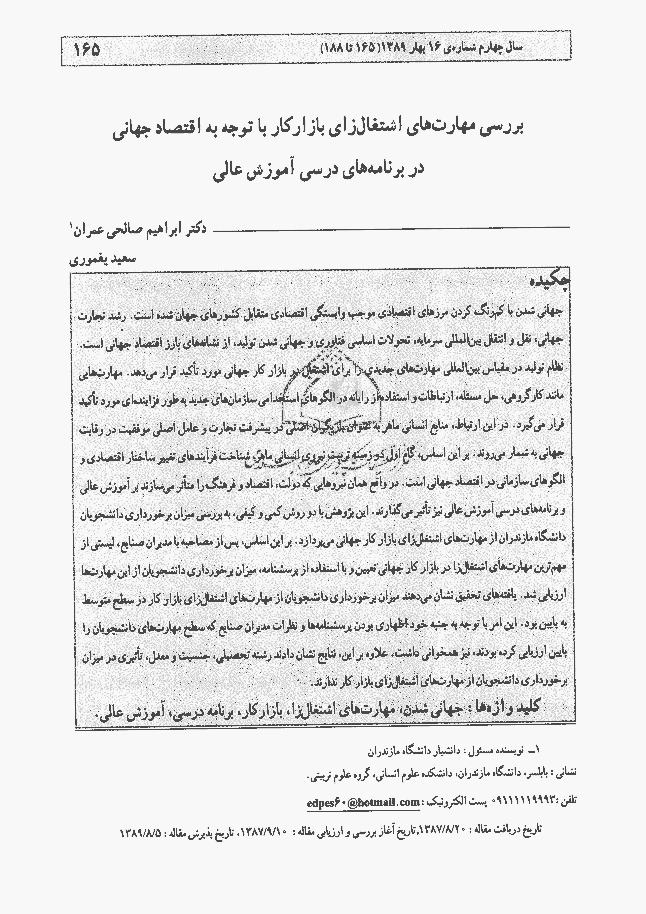 سال چهارم شماره‌ی ۱۶ بهار ۱۳۸۹(۱۶۵ تا ۱۸۸)
۱۶۵
بررسی مهارت‌های اشتغال‌زای بازار کار با توجه به اقتصاد جهانی
در برنامه‌های درسی آموزش عالی
دکتر ابراهیم صالحی عمران۱
سعید یغموری
چکیده
جهانی شدن با کم‌رنگ کردن مرزهای اقتصادی موجب وابستگی اقتصادی متقابل کشورهای جهان شده است. رشد تجارت
جهانی، نقل و انتقال بین‌المللی سرمایه، تحولات اساسی فناوری و جهانی شدن تولید، از نشانه‌های بارز اقتصاد جهانی است.
نظام تولید در مقیاس بین‌المللی مهارت‌های جدیدی را برای اشتغال در بازار کار جهانی مورد تأکید قرار می‌دهد. مهارت‌هایی
مانند کارگروهی، حل مسئله، ارتباطات و استفاده از رایانه در الگوهای استخدامی سازمان‌های جدید به طور فزاینده‌ای مورد تأکید
قرار می‌گیرد. در این ارتباط، منابع انسانی ماهر به عنوان بازیگران اصلی در پیشرفت تجارت و عامل اصلی موفقیت در رقابت
جهانی به شمار می‌روند. بر این اساس، گام اول در زمینه تربیت نیروی انسانی ماهر، شناخت فرآیندهای تغییر ساختار اقتصادی و
الگوهای سازمانی در اقتصاد جهانی است. در واقع همان نیروهایی که دولت، اقتصاد و فرهنگ را متأثر می‌سازند بر آموزش عالی
و برنامه‌های درسی آموزش عالی نیز تأثیر می‌گذارند. این پژوهش با دو روش کمی و کیفی، به بررسی میزان برخورداری دانشجویان
دانشگاه مازندران از مهارت‌های اشتغال‌زای بازار کار جهانی می‌پردازد. بر این اساس، پس از مصاحبه با مدیران صنایع، لیستی از
مهم‌ترین مهارت‌های اشتغال‌زا در بازار کار جهانی تعیین و با استفاده از پرسشنامه، میزان برخورداری دانشجویان از این مهارت‌ها
ارزیابی شد. یافته‌های تحقیق نشان می‌دهند میزان برخورداری دانشجویان از مهارت‌های اشتغال‌زای بازار کار در سطح متوسط
به پایین بود. این امر با توجه به جنبه خود اظهاری بودن پرسشنامه‌ها و نظرات مدیران صنایع که سطح مهارت‌های دانشجویان را
پایین ارزیابی کرده بودند، نیز همخوانی داشت، علاوه بر این، نتایج نشان دادند رشته تحصیلی، جنسیت و معدل، تأثیری در میزان
برخورداری دانشجویان از مهارت‌های اشتغال‌زای بازار کار ندارند.
کلید واژه‌ها : جهانی شدن، مهارت‌های اشتغال‌زا، بازار کار، برنامه درسی، آموزش عالی.
۱ـ نویسنده مسئول : دانشیار دانشگاه مازندران
نشانی : بابلسر، دانشگاه مازندران، دانشکده علوم انسانی، گروه علوم تربیتی.
تلفن :۰۹۱۱۱۱۱۹۹۹۳ پست الکترونیک : edpes۶۰@hotmail.com
تاریخ دریافت مقاله : ۱۳۸۷/۸/۲۰،تاریخ آغاز بررسی و ارزیابی مقاله : ۱۳۸۷/۹/۱۰، تاریخ پذیرش مقاله : ۱۳۸۹/۸/۵